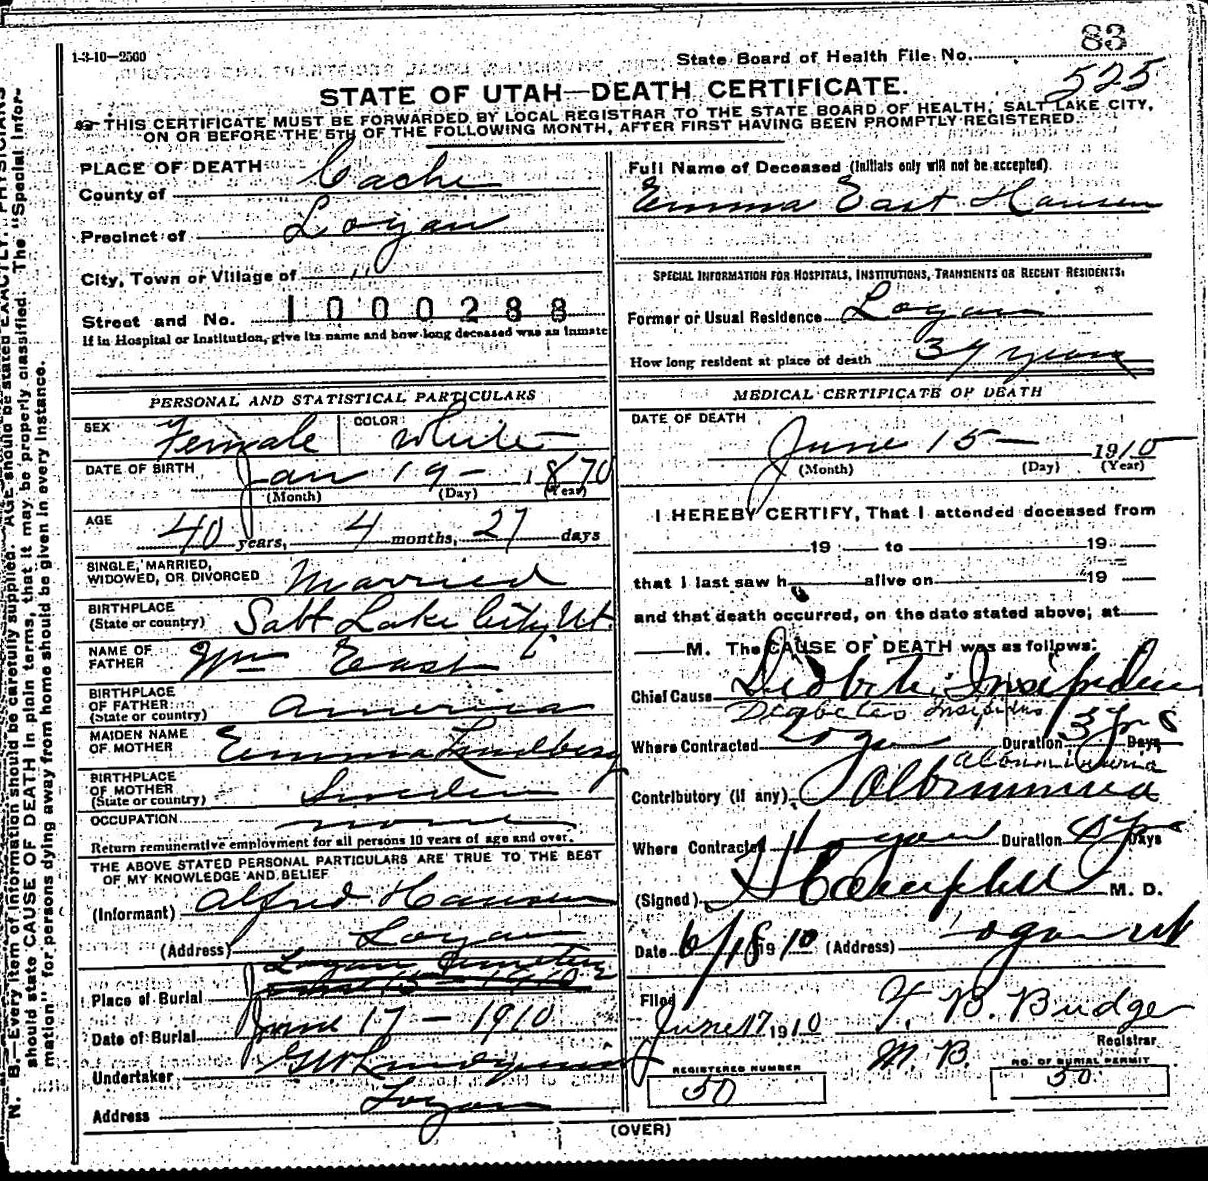 1-3-10—2500
State Board of Health File No. 83
525
STATE OF UTAH—DEATH CERTIFICATE.
THIS CERTIFICATE MUST BE FORWARDED BY LOCAL REGISTRAR TO THE STATE BOARD OF HEALTH, SALT LAKE CITY,
ON OR BEFORE THE 5TH OF THE FOLLOWING MONTH, AFTER FIRST HAVING BEEN PROMPTLY REGISTERED.
PLACE OF DEATH
County of Cache
Precinct of Logan
City, Town or Village of "
Street and No. 1000288
If in Hospital or Institution, give its name and how long deceased was an inmate
PERSONAL AND STATISTICAL PARTICULARS
SEX Female COLOR White
DATE OF BIRTH Jan 19 - 1870
(Month) (Day) (Year)
AGE 40 years, 4 months, 27 days
SINGLE, MARRIED,
WIDOWED, OR DIVORCED Married
BIRTHPLACE
(State or country) Salt Lake City, Ut.
NAME OF
FATHER Wm East
BIRTHPLACE
OF FATHER
(State or country) America
MAIDEN NAME
OF MOTHER Emma Lindberg
BIRTHPLACE
OF MOTHER
(State or country) Sweden
OCCUPATION none
Return remunerative employment for all persons 10 years of age and over.
THE ABOVE STATED PERSONAL PARTICULARS ARE TRUE TO THE BEST
OF MY KNOWLEDGE AND BELIEF
(Informant) Alfred Hansen
(Address) Logan
Logan Cemetery
Place of Burial
Date of Burial June 17 - 1910
Undertaker
Address Logan
Full Name of Deceased (Initials only will not be accepted).
Emma East Hansen
SPECIAL INFORMATION FOR HOSPITALS, INSTITUTIONS, TRANSIENTS OR RECENT RESIDENTS.
Former or Usual Residence Logan
How long resident at place of death 39 years
MEDICAL CERTIFICATE OF DEATH
DATE OF DEATH
June 15 — 1910
(Month) (Day) (Year)
I HEREBY CERTIFY, That I attended deceased from
19 to 19
that I last saw h alive on 19
and that death occurred, on the date stated above, at
M. The CAUSE OF DEATH was as follows:
Chief Cause Diabetes Insipidus
Diabetes Insipidus
Where Contracted Logan Duration 3 yrs Days
Albuminuria
Contributory (if any) Albuminuria
Where Contracted Logan Duration Days
(Signed) Campbell M. D.
Date 6/18 1910 (Address) Logan Ut
Filed
June 17 1910 F. B. Budge
Registrar
M. B.
REGISTERED NUMBER
50
NO. OF BURIAL PERMIT
50
(OVER)
N. B.—Every item of information should be carefully supplied. AGE should be stated EXACTLY. PHYSICIANS
should state CAUSE OF DEATH in plain terms, that it may be properly classified. The "Special Infor-
mation" for persons dying away from home should be given in every instance.